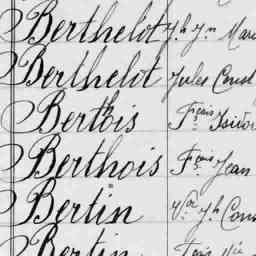 Berthelot Jh Jn Mari
Berthelot Jules Const
Bertois Fçois Isidor
Berthois Fçois Jean
Bertin Vor Jh Cons
Bertin